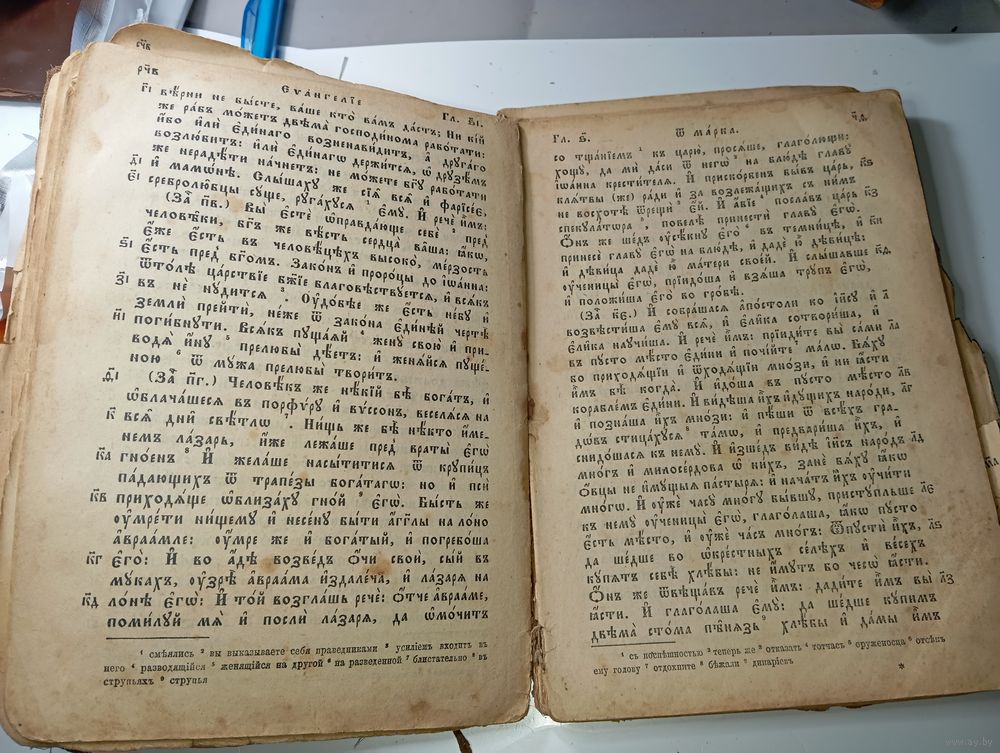 сч҃в
рч҃в
Єѵа́нгелїе
Гл. ѕ҃і.
г҃і вѣ́рни не бы́сте, ва́ше кто̀ ва́мъ да́стъ; Ни кі́й
же ра́бъ мо́жетъ двѣма̀ господи́нома рабо́тати:
и҆́бо и҆лѝ є҆ди́наго возненави́дитъ, а҆ дрꙋга́го
возлю́битъ: и҆лѝ є҆ди́нагѡ держи́тсѧ, ѡ҆ дрꙋ́зѣмъ
же неради́ти на́чнетъ: не мо́жете бг҃ꙋ рабо́тати
д҃і и҆ мамѡ́нѣ. Слы́шахꙋ же сїѧ̑ всѧ̑ и҆ фарїсе́є,
є҃і сребролю́бцы сꙋ́ще, рꙋга́хꙋсѧ ¹ є҆мꙋ̀. И҆ речѐ и҆̀мъ:
(За҄ п҃в.) Вы̀ є҆стѐ ѡ҆правда́юще себѐ ² пред̾
человѣ̑ки, бг҃ъ же вѣ́сть сердца̀ ва̑ша: ꙗ҆́кѡ,
є҆́же є҆́сть въ человѣ́цѣхъ высоко̀, ме́рзость
ѕ҃і є҆́сть пред̾ бг҃омъ. Зако́нъ и҆ проро́цы до і҆ѡа́нна:
ѿто́лѣ ца́рствїе бж҃їе благовѣствꙋ́етсѧ, и҆ всѧ́къ
з҃і въ нѐ нꙋ́дитсѧ ³. Оу҆до́бѣе же є҆́сть не́бꙋ и҆
землѝ прейтѝ, не́же ѿ зако́на є҆ди́нѣй чертѣ̀
и҃і поги́бнꙋти. Всѧ́къ пꙋща́ѧй ⁴ женꙋ̀ свою̀ и҆ при-
водѧ̀ и҆́нꙋ ⁵ прелюбы̀ дѣ́етъ: и҆ женѧ́йсѧ пꙋще́-
ною ⁶ ѿ мꙋ́жа прелюбы̀ твори́тъ.
ѳ҃і (За҄ п҃г.) Человѣ́къ же нѣ́кїй бѣ̀ бога́тъ, и҆
ѡ҆блача́шесѧ въ порфѵ́рꙋ и҆ ви́ссонъ, веселѧ́сѧ на
к҃ всѧ̑ дни̑ свѣ́тлѡ ⁷. Ни́щь же бѣ̀ нѣ́кто и҆́ме-
немъ ла́зарь, и҆́же лежа́ше пред̾ враты̀ є҆гѡ̀
к҃а гно́енъ ⁸ И҆ жела́ше насы́титисѧ ѿ крꙋпи́цъ
па́дающихъ ѿ трапе́зы бога́тагѡ: но и҆ псѝ
к҃в приходѧ́ще ѡ҆близа́хꙋ гно́й ⁹ є҆гѡ̀. Бы́сть же
ᲂу҆мре́ти ни́щемꙋ и҆ несе́нꙋ бы́ти а҆́гг҃лы на ло́но
а҆враа́мле: ᲂу҆́мре же и҆ бога́тый, и҆ погребо́ша
к҃г є҆го̀: И҆ во а҆́дѣ возве́дъ ѻ҆́чи своѝ, сы́й въ
мꙋ́кахъ, ᲂу҆зрѣ̀ а҆враа́ма и҆здале́ча, и҆ ла́зарѧ на
к҃д ло́нѣ є҆гѡ̀: И҆ то́й возгла́шь речѐ: ѻ҆́тче а҆враа́ме,
поми́лꙋй мѧ̀ и҆ послѝ ла́зарѧ, да ѡ҆мо́читъ
¹ смѣялись ² вы выказываете себя праведниками ³ усиліемъ входитъ въ
него ⁴ разводящійся ⁵ женящійся на другой ⁶ на разведенной ⁷ блистательно ⁸ въ
струпьяхъ ⁹ струпья
Гл. ѕ҃.
Ѿ ма́рка.
ч҃д
со тща́нїемъ ¹ къ царю̀, прося́ше, глаго́лющи:
хощꙋ̀, да мѝ да́си ѿ негѡ̀ ² на блю́дѣ главꙋ̀
і҆ѡа́нна крести́телѧ. И҆ приско́рбенъ бы́въ ца́рь, к҃ѕ
клѧ́твы (же) ра́ди и҆ за возлежа́щихъ съ ни́мъ
не восхотѣ̀ ѿрещѝ ³ є҆́й. И҆ а҆́бїе ⁴ посла́въ ца́рь к҃з
спекꙋла́тора ⁵, повелѣ̀ принестѝ главꙋ̀ є҆гѡ̀.
Ѻ҆́нъ же ше́дъ ᲂу҆сѣ́кнꙋ є҆го̀ ⁶ въ темни́цѣ, и҆ к҃и
принесѐ главꙋ̀ є҆гѡ̀ на блю́дѣ, и҆ дадѐ ю҆̀ дѣви́цѣ:
и҆ дѣви́ца дадѐ ю҆̀ ма́тери свое́й. И҆ слы́шавше к҃ѳ
ᲂу҆ченицы̀ є҆гѡ̀, прїидо́ша и҆ взѧ́ша трꙋ́пъ є҆гѡ̀,
и҆ положи́ша є҆го̀ во гро́бѣ.
(За҄ к҃є.) И҆ собра́шасѧ а҆по́столи ко і҆и҃сꙋ и҆ л҃
возвѣсти́ша є҆мꙋ̀ всѧ̑, и҆ є҆ли̑ка сотвори́ша, и҆
є҆ли̑ка наꙋчи́ша. И҆ речѐ и҆̀мъ: прїиди́те вы̀ са́ми л҃а
въ пꙋ́сто мѣ́сто є҆ди́ни и҆ почі́йте ⁷ ма́лѡ. Бѧ́хꙋ
бо приходѧ́щїи и҆ ѿходѧ́щїи мно́зи, и҆ ни ꙗ҆́сти
и҆̀мъ бѣ̀ когда̀. И҆ и҆до́ша въ пꙋ́сто мѣ́сто л҃в
кораблє́мъ є҆ди́ни. И҆ ви́дѣша и҆̀хъ и҆дꙋ́щихъ наро́ди, л҃г
и҆ позна́ша и҆̀хъ мно́зи: и҆ пѣ́ши ѿ всѣ́хъ гра-
дѡ́въ стица́хꙋсѧ ⁸ та́мѡ, и҆ предвари́ша и҆̀хъ, и҆
снидо́шасѧ къ немꙋ̀. И҆ и҆зше́дъ ви́дѣ і҆и҃съ наро́дъ л҃д
мно́гъ и҆ милосе́рдова ѡ҆ ни́хъ, занѐ бѧ́хꙋ ꙗ҆́кѡ
ѻ҆́вцы не и҆мꙋ́щыѧ па́стырѧ: и҆ нача́тъ и҆̀хъ ᲂу҆чи́ти
мно́гѡ. И҆ ᲂу҆жѐ часꙋ̀ мно́гꙋ бы́вшꙋ, пристꙋ́пльше л҃є
къ немꙋ̀ ᲂу҆ченицы̀ є҆гѡ̀, глаго́лаша, ꙗ҆́кѡ пꙋ́сто
є҆́сть мѣ́сто, и҆ ᲂу҆жѐ ча́съ мно́гъ: Ѿпꙋстѝ и҆̀хъ, л҃ѕ
да ше́дше во ѡ҆кре́стныхъ се́лѣхъ и҆ ве́сехъ
кꙋ́пѧтъ себѣ̀ хлѣ́бы: не и҆́мꙋтъ бо чесѡ̀ ꙗ҆́сти.
Ѻ҆́нъ же ѿвѣща́въ речѐ и҆̀мъ: дади́те и҆̀мъ вы̀ л҃з
ꙗ҆́сти. И҆ глаго́лаша є҆мꙋ̀: да ше́дше кꙋ́пимъ
двѣма̀ сто́ма пѣ̑нязь ⁹ хлѣ́бы и҆ да́мы и҆̀мъ
¹ съ поспѣшностью ² теперь же ³ отказать ⁴ тотчасъ ⁵ оруженосца ⁶ отсѣкъ
ему голову ⁷ отдохните ⁸ бѣжали ⁹ динаріевъ
*
www.ay.by